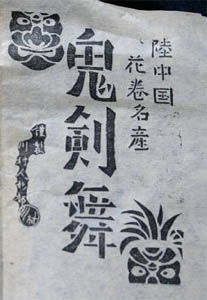 陸中国
花巻名産
鬼剣舞
謹製